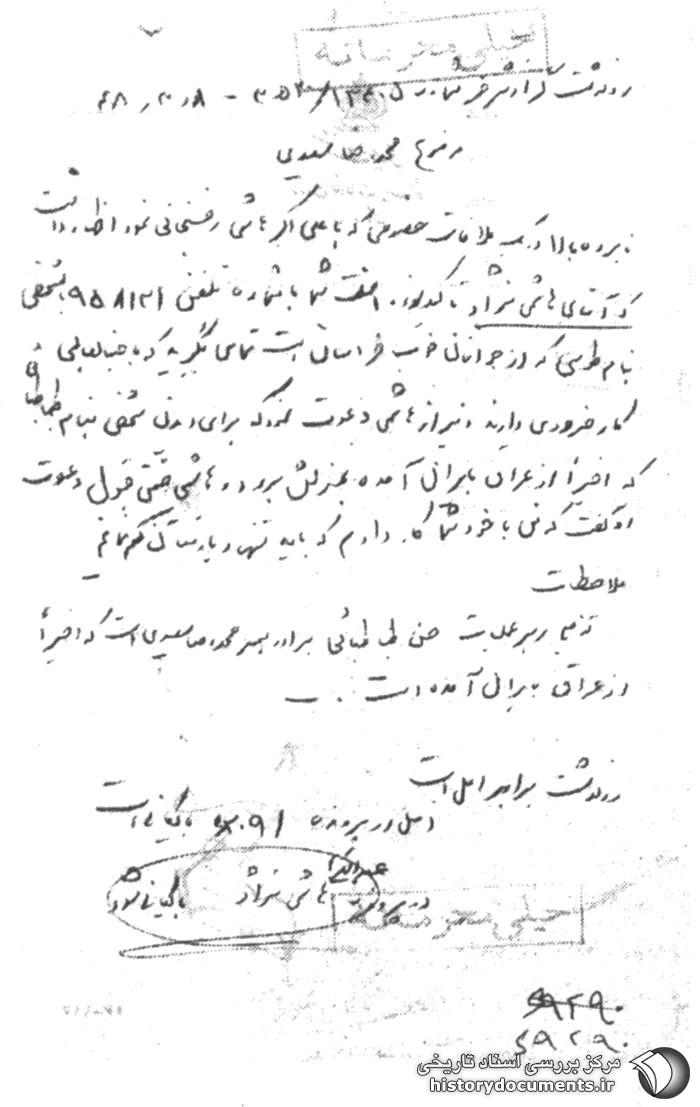 خیلی محرمانه
رونوشت گزارش خبر شماره ۱۲۴۰۵/ ۳۵۲ - ۴۸٫۳٫۸
موضوع محمدرضا سعیدی
نامبرده بالا در یک ملاقات خصوصی که با علی اکبر هاشمی رفسنجانی نمود اظهار داشت
که آقای هاشمی نژاد تاکید نموده گفت شما با شماره تلفن ۹۵۸۱۳۱ بشخصی
بنام طوسی که از جوانان خوب خراسان است تماس بگیرید که با جنابعالی
کار ضروری دارند و نیز از هاشمی دعوت نمود که برای دیدن شخصی بنام طباطبائی
که اخیراً از عراق بایران آمده بمنزلش برود و هاشمی ضمن قبول دعوت
او گفت که من با خود شما کار دارم که باید تنها و با شما
ملاحظات
رهبر عملیات حسن طباطبائی برادر همسر محمدرضا سعیدی است که اخیراً
از عراق بایران آمده است .
رونوشت برابر اصل است
اصل در پرونده ۵۰۹۱ بایگانی است
در پرونده عبدالکریم هاشمی نژاد بایگانی شود
خیلی محرمانه
۴۹۲۹۰
۴۹۲۹۰
مرکز بررسی اسناد تاریخی
historydocuments.ir